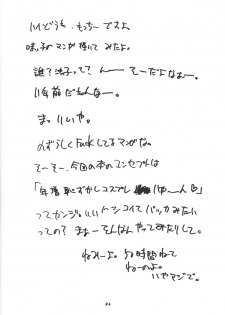 ハイどうも、もっちーですよ。
味っ子のマンガ描いてみたよ。
誰?洋子って?んーそーだよなぁー。
11年前だもんなー。
まっいいや。
めずらしくFuckしてるマンガな。
てーそー、今回の本のコンセプトは
「年増恥ずかしコスプレ ゆーん
ってカンジ。いいトシコイてバッカみたいに
っての?まぁーそんなんやってみたりして。
ねみーよ。50時間ねて
ねーのよ。
いやマジで。